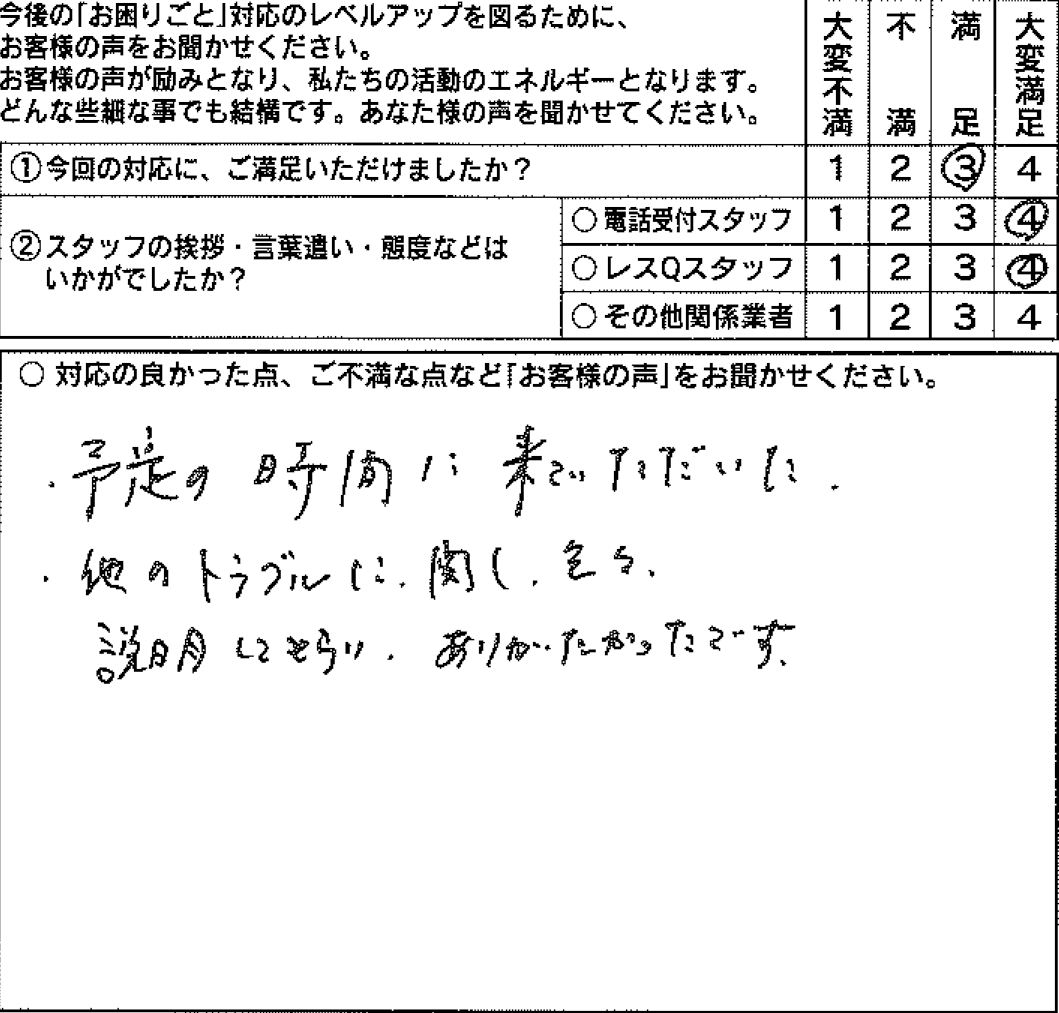 今後の「お困りごと」対応のレベルアップを図るために、
お客様の声をお聞かせください。
お客様の声が励みとなり、私たちの活動のエネルギーとなります。
どんな些細な事でも結構です。あなた様の声を聞かせてください。
大変不満 不満 満足 大変満足
①今回の対応に、ご満足いただけましたか？ 1 2 3 4
②スタッフの挨拶・言葉遣い・態度などは
いかがでしたか？
○電話受付スタッフ 1 2 3 4
○レスQスタッフ 1 2 3 4
○その他関係業者 1 2 3 4
○対応の良かった点、ご不満な点など「お客様の声」をお聞かせください。
・予定の時間に来ていただいた.
・他のトラブルに、関し、色々、
説明してもらい、ありがたかったです、